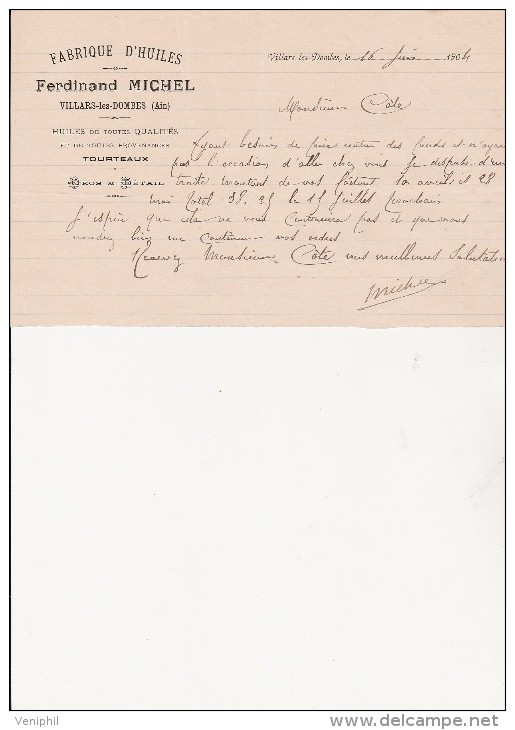 FABRIQUE D'HUILES
Ferdinand MICHEL
VILLARS-les-DOMBES (Ain)
HUILES DE TOUTES QUALITÉS
ET DE TOUTES PROVENANCES
TOURTEAUX
GROS & DÉTAIL
Villars-les-Dombes, le 16 juin 1904
Monsieur Côte
Ayant besoins de faire rentrer des fonds et n'ayant
pas l'occasion d'aller chez vous je dispose d'une
traite montant de vos facture 10 avril et 28
mai total 38.25 le 15 juillet prochain
J'espère que cela ne vous contrariera pas et que vous
voudrez bien me continuer vos ordres
Recevez Monsieur Côte mes meilleures salutations
Michel
Veniphil
www.delcampe.net